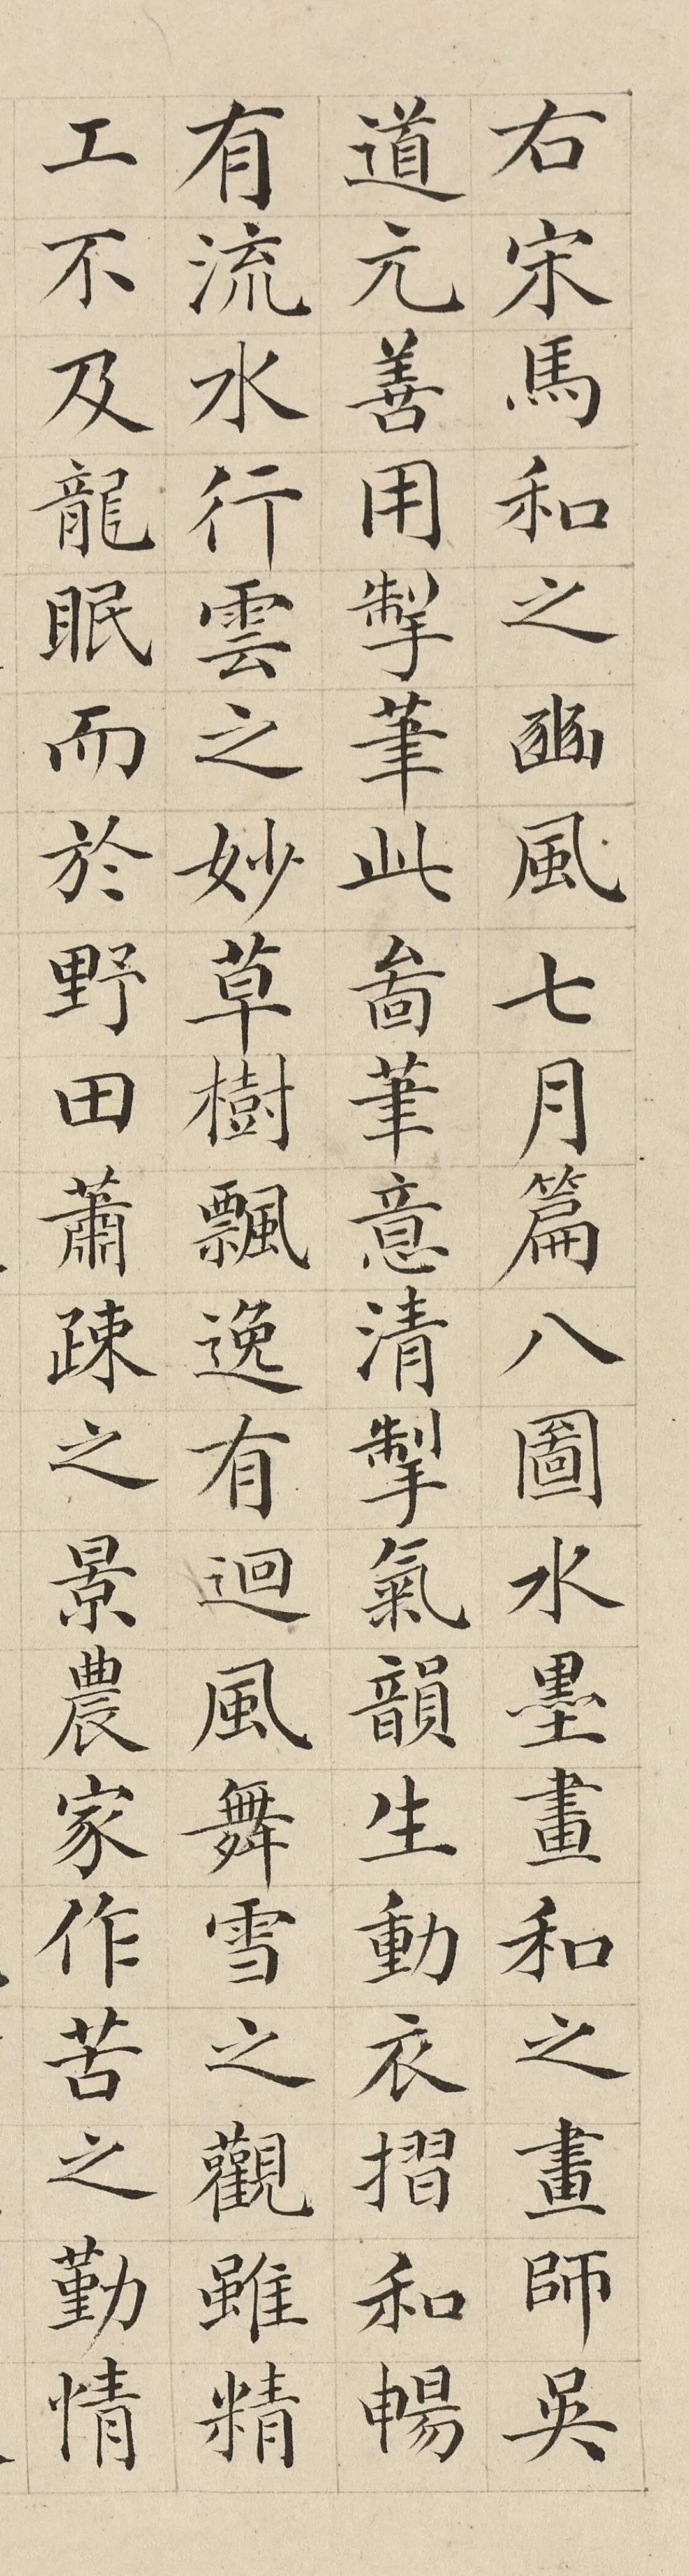 右宋馬和之豳風七月篇八圖水墨畫和之畫師吳
道元善用掣筆此啚筆意清掣氣韻生動衣摺和暢
有流水行雲之妙草樹飄逸有迴風舞雪之觀雖精
工不及龍眠而於野田蕭疎之景農家作苦之勤情